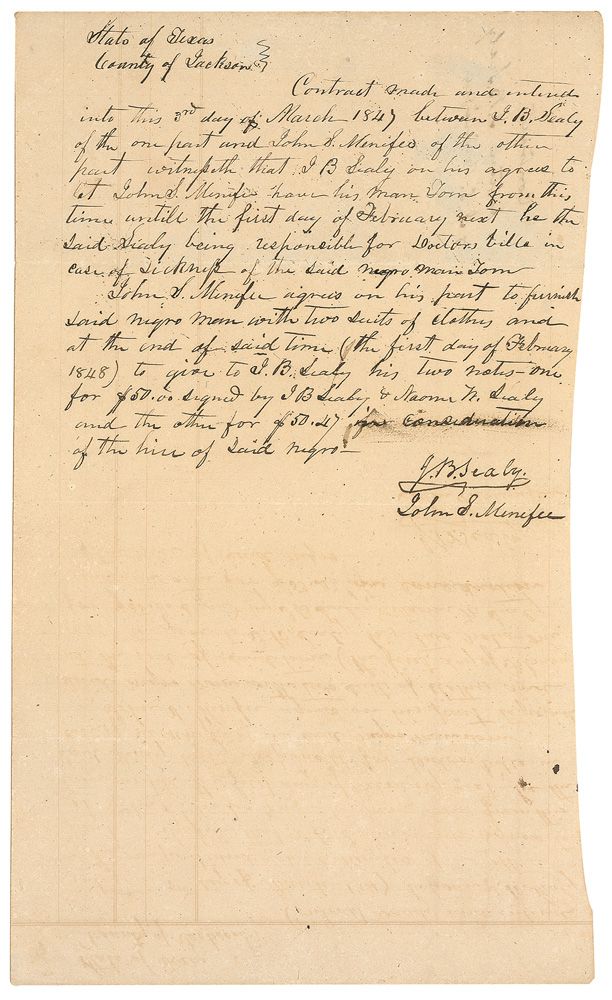 State of Texas
County of Jackson
Contract made and entered
into this 3rd day of March 1847 between J. B. Sealy
of the one part and John S. Menifee of the other
part witnesseth that J B Sealy on his agrees to
let John S. Menifee have his man Tom from this
time untill the first day of February next he the
said Sealy being responsible for Doctors bills in
case of sickness of the said negro man Tom
John S. Menifee agrees on his part to furnish
said negro man with two suits of clothes and
at the end of said time (the first day of February
1848) to give to J. B. Sealy his two notes - one
for $50.00 signed by J B Sealy & Naomi W. Sealy
and the other for $50.47 in consideration
of the hire of said negro -
J. B. Sealy.
John S. Menifee